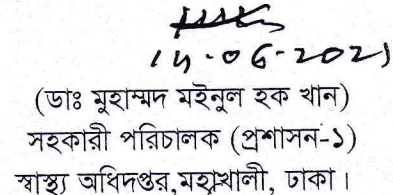 (ডাঃ মুহাম্মদ মইনুল হক খান)
সহকারী পরিচালক (প্রশাসন-১)
স্বাস্থ্য অধিদপ্তর,মহাখালী, ঢাকা।